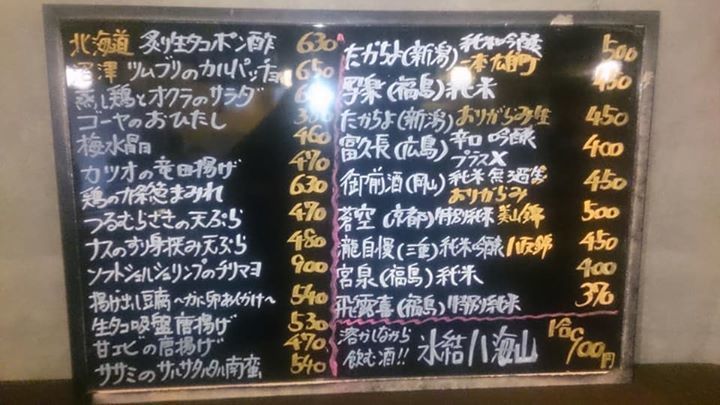 北海道 炙り生タコポン酢 630
沼澤 ツムブリのカルパッチョ 650
蒸し鶏とオクラのサラダ
ゴーヤのおひたし
梅水晶 460
カツオの竜田揚げ 470
鶏の まみれ 630
つるむらさきの天ぷら 470
ナスのすり身挟み天ぷら 480
ソフトシェルシュリンプのチリマヨ 900
揚げ出し豆腐〜かに卵あんかけ〜 540
生タコ吸盤唐揚げ 530
甘エビの唐揚げ 470
ササミのサルサタルタル南蛮 540
たかちよ(新潟) 純米吟醸 一本〆 雄町 500
写楽(福島)純米 450
たかちよ(新潟) おりがらみ生 450
富久長(広島) 辛口 吟醸 プラスX 400
御前酒(岡山) 純米 無濾過 おりがらみ 450
蒼空(京都)特別純米 美山錦 500
瀧自慢(三重)純米吟醸 八反錦 450
宮泉(福島)純米 400
飛露喜(福島)特別純米 390
溶かしながら
飲む酒!! 氷結八海山 1合 900円